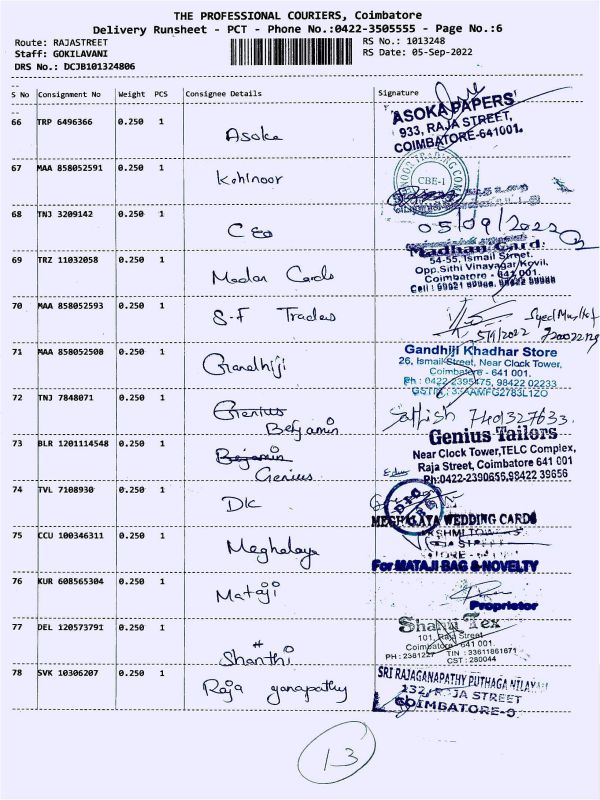 THE PROFESSIONAL COURIERS, Coimbatore
Delivery Runsheet - PCT - Phone No.:0422-3505555 - Page No.:6
Route: RAJASTREET
RS No.: 1013248
Staff: GOKILAVANI
RS Date: 05-Sep-2022
DRS No.: DCJB101324806
S No Consignment No Weight PCS Consignee Details Signature
66 TRP 6496366 0.250 1 Asoka
ASOKA PAPERS
933, RAJA STREET,
COIMBATORE-641001.
67 MAA 858052591 0.250 1 Kohinoor
CBE-1
68 TNJ 3209142 0.250 1 CEO
05/09/2022
69 TRZ 11032058 0.250 1 Madan Cards
Madhan Card
54-55, Ismail Street,
Opp.Sithi Vinayagar Kovil,
Coimbatore - 641 001.
70 MAA 858052593 0.250 1 S-F Traders
5/9/2022
71 MAA 858052508 0.250 1 Gandhiji
Gandhiji Khadhar Store
26, Ismail Street, Near Clock Tower,
Coimbatore - 641 001.
Ph : 0422-2395475, 98422 02233
72 TNJ 7848071 0.250 1 Genius
Benjamin
Sathish 7401327633
73 BLR 1201114548 0.250 1 Bejamin
Genius
Genius Tailors
Near Clock Tower,TELC Complex,
Raja Street, Coimbatore 641 001
Ph:0422-2390656,98422 39656
74 TVL 7108930 0.250 1 DK
75 CCU 100346311 0.250 1 Meghalaya
MEGHALAYA WEDDING CARDS
76 KUR 608565304 0.250 1 Mataji
For MATAJI BAG & NOVELTY
Proprietor
77 DEL 120573791 0.250 1 Shanthi
Shanti Tex
101, Raja Street
Coimbatore - 641 001.
PH : 2381227 TIN : 33611861671
CST : 280044
78 SVK 10306207 0.250 1 Raja ganapathy
SRI RAJAGANAPATHY PUTHAGA NILAYAM
132, RAJA STREET
COIMBATORE-
13